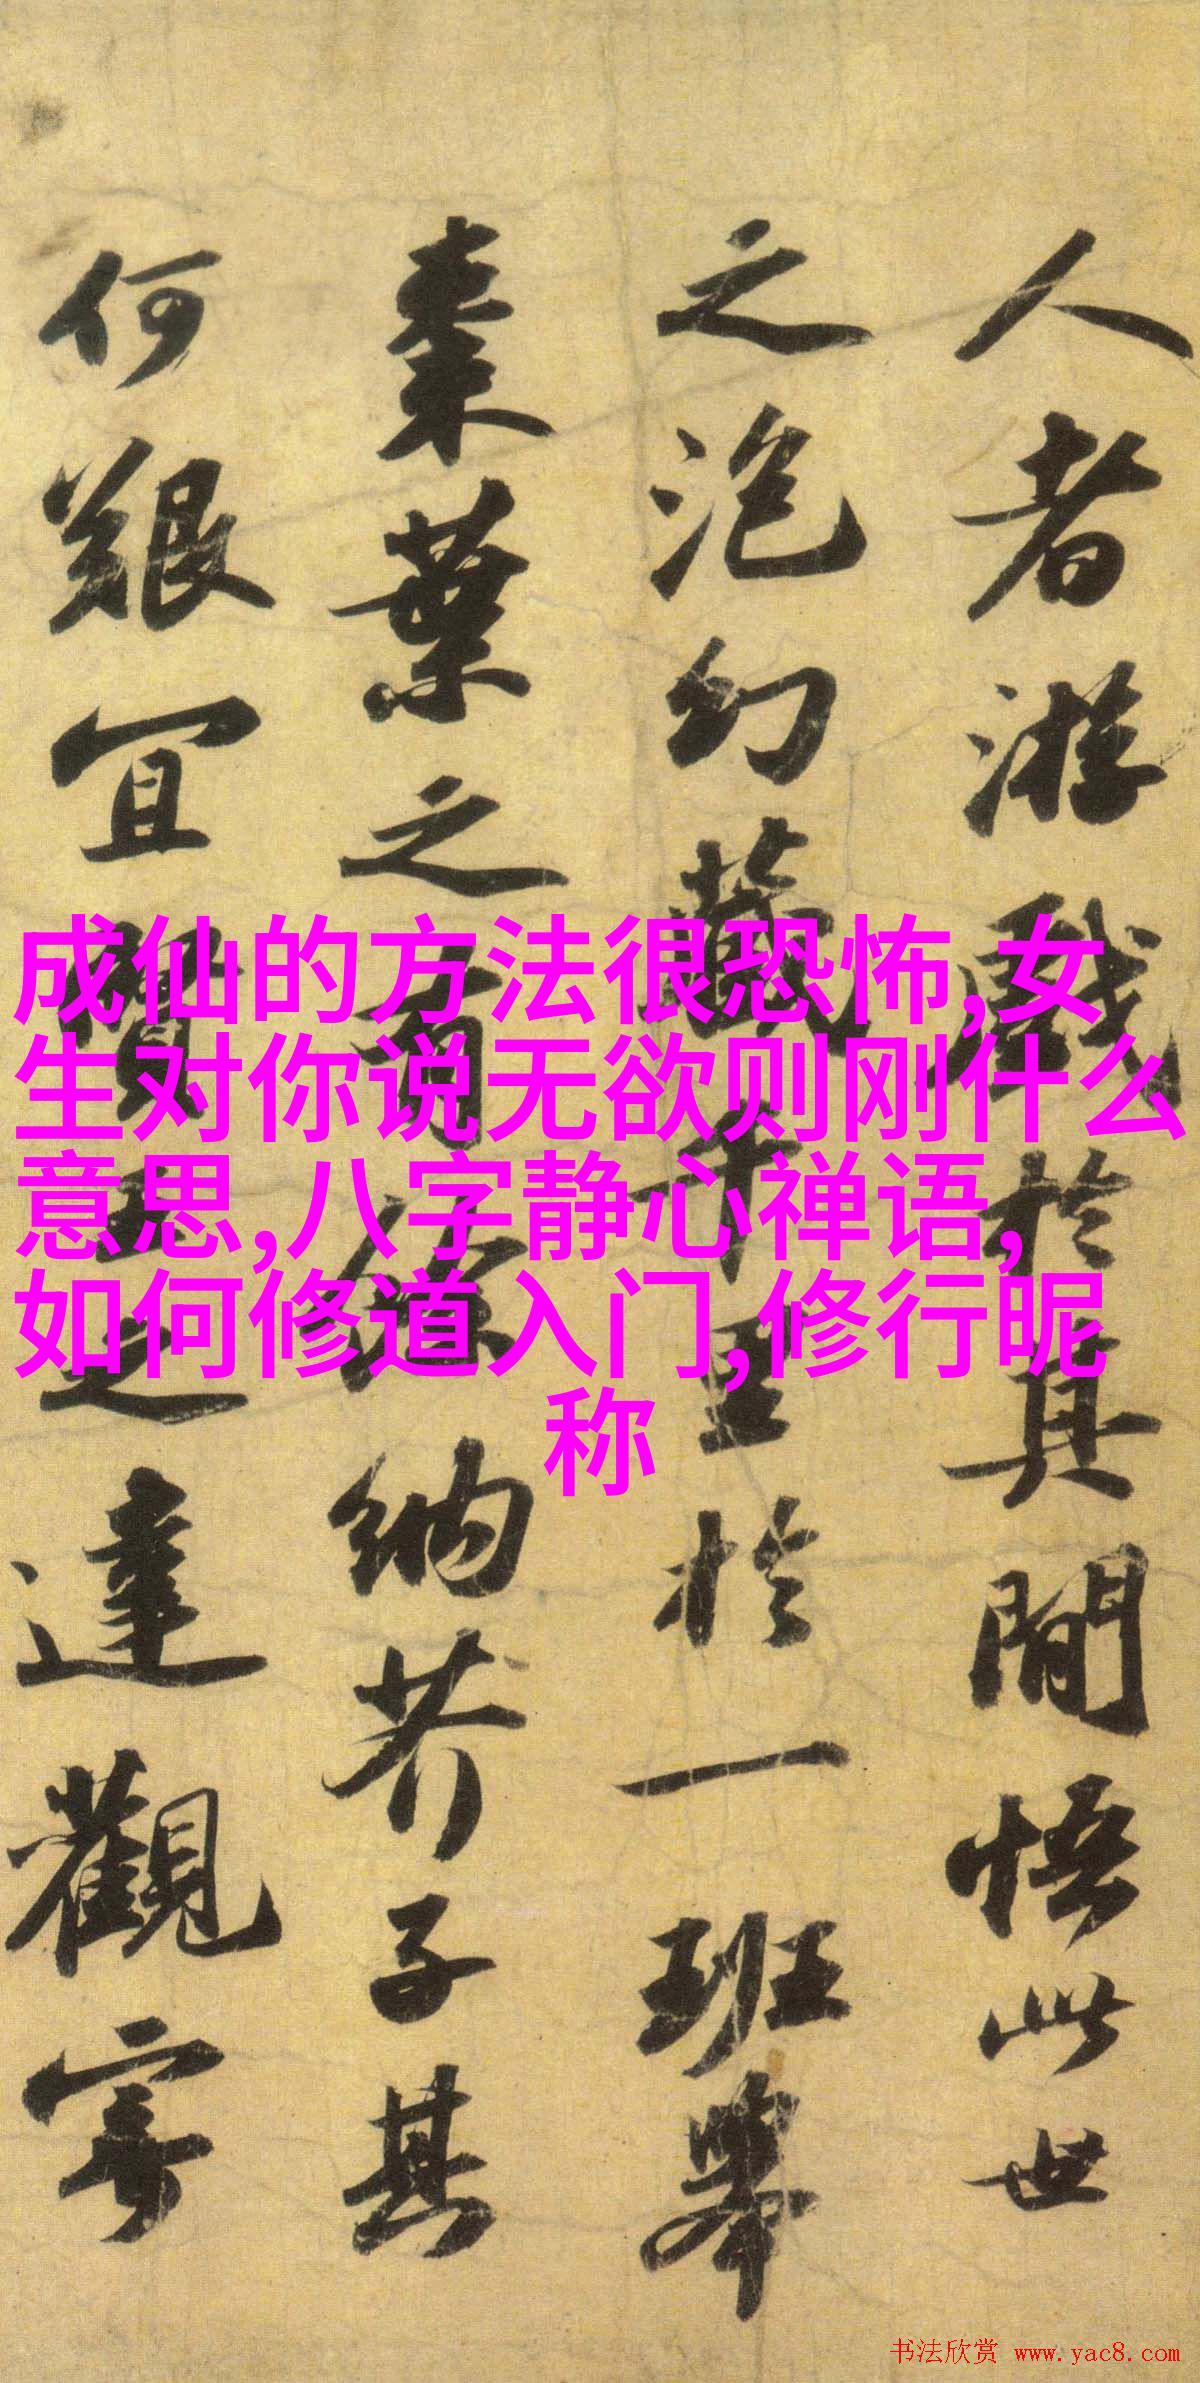 人者游戲於其間悟此世
之泡幻藏千里於一班舉
棗葉之有餘納芥子其
何艱宜賢王之達觀寄
成仙的方法很恐怖,女
生对你说无欲则刚什么
意思,八字静心禅语,
如何修道入门,修行昵
称
书法欣赏 www.yac8.com